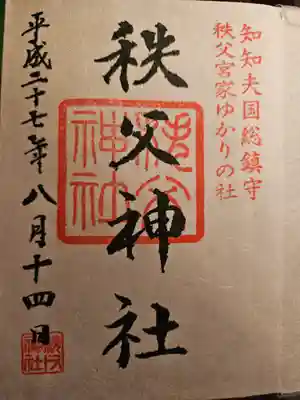 知知夫国総鎮守
秩父宮家ゆかりの社
秩父神社
秩父神社
平成二十七年八月十四日
秩父神社